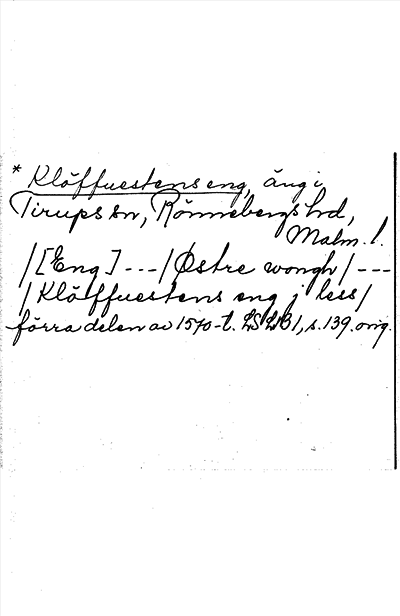 * Klöffuestens eng, äng i
Tirups sn, Rönnebergs hd,
Malm. l.
/[Eng] --- / Østre wongh / ---
/ Klöffuestens eng j less /
förra delen av 1570-t. LSLB1, s. 139. orig.